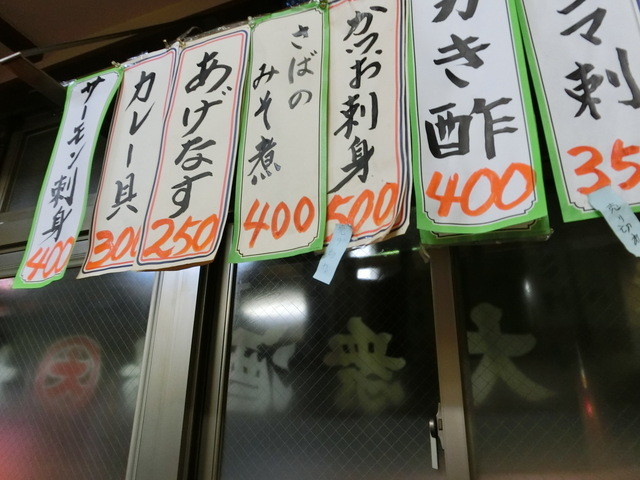 サーモン刺身
400
カレー具
300
あげなす
250
さばの
みそ煮
400
かつお刺身
500
かき酢
400
マ刺
35
大衆酒
大